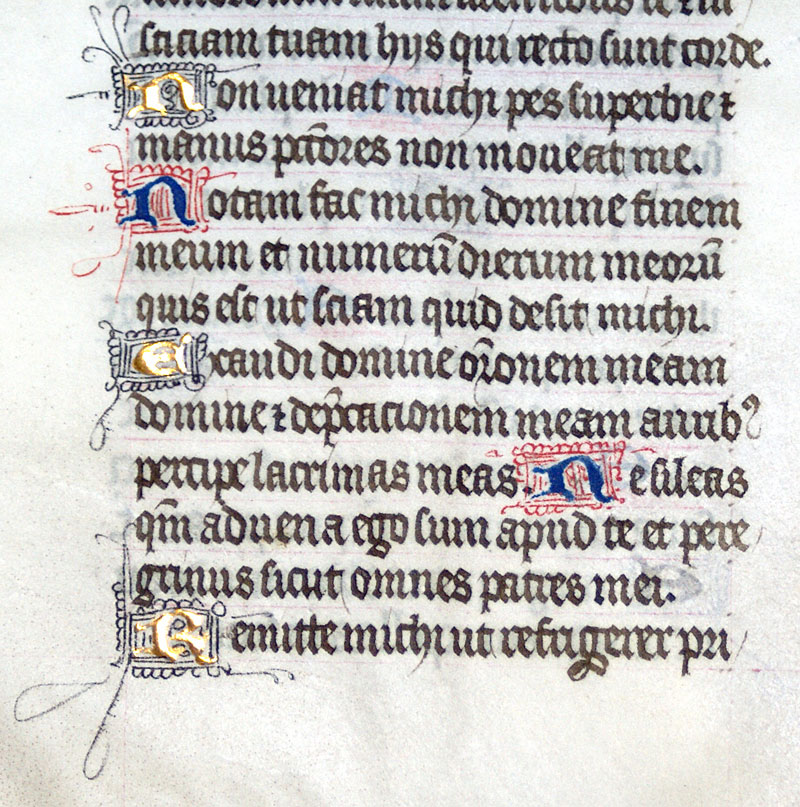 sticiam tuam hijs qui recto sunt corde.
Non ueniat michi pes superbie ⁊
manus pctōres non moueat me.
Notam fac michi domine finem
meum et numerū dierum meorū
quis est ut sciam quid desit michi.
Exaudi domine orōnem meam
domine ⁊ dep̄cacionem meam aurib⁹
percipe lacrimas meas. Ne sileas
qm̄ aduena ego sum apud te et pere/
grinus sicut omnes patres mei.
Remitte michi ut refrigerer pri/